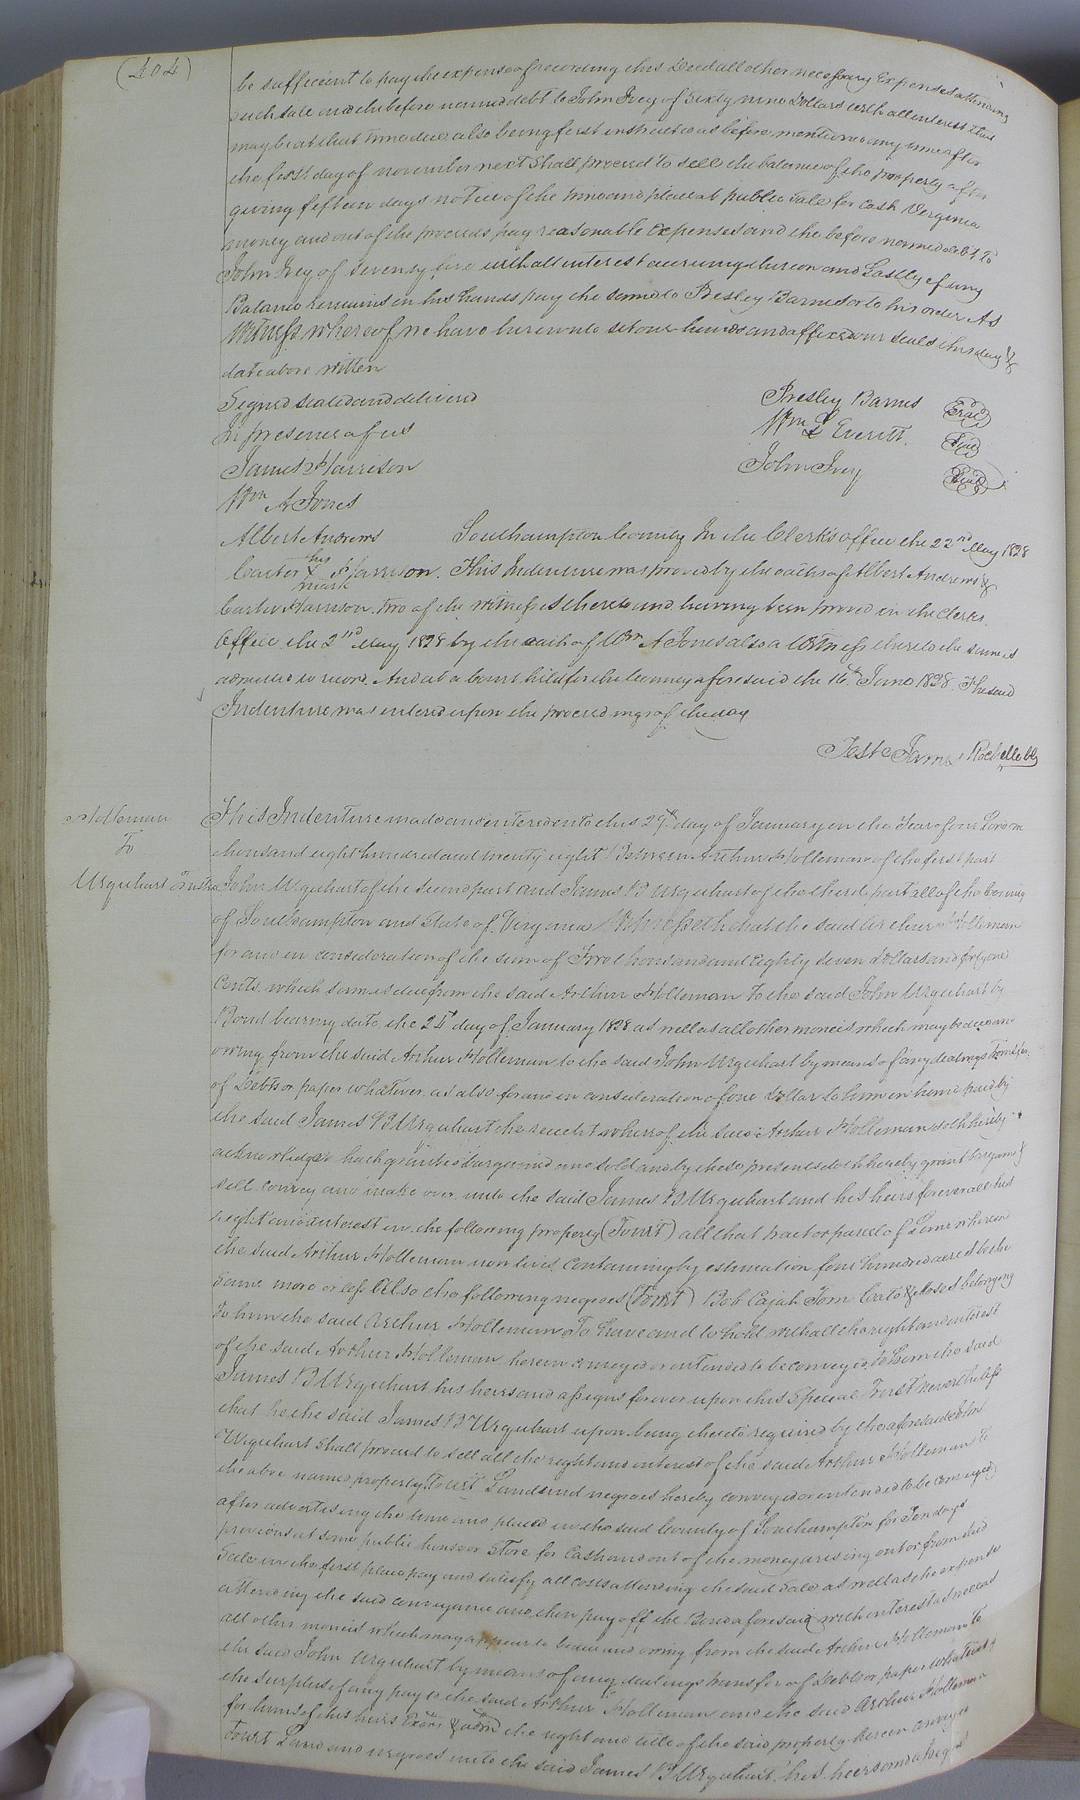 (404)
be sufficient to pay the expense of recording this Deed all other necessary Expenses attending
such sale and the before named debt to John Ivey of Sixty nine Dollars with all interest that
may be at that time due also being first instructed as before mentioned any time after
the first day of november next shall proceed to sell the balance of the property after
giving fifteen days notice of the time and place at public sale for cash Virginia
money and out of the proceeds pay reasonable Expenses and the before named debt to
John Ivey of seventy five with all interest accruing thereon and Lastly if any
Balance remains in his hands pay the same to Presley Barnes or to his order As
Witness whereof we have hereunto set our hands and affixed our seals this day &
date above written
Signed sealed and delivered Presley Barnes Seal
In presence of us Wm E Everitt. Seal
James Harrison John Ivey Seal
Wm A Jones
Albert Andrews Southampton County In the Clerk's office the 22nd May 1828
Carter his X mark Harrison. This Indenture was proved by the oaths of Albert Andrews &
Carter Harrison two of the witnesses thereto and having been proved in the Clerks.
Office the 2nd May 1828 by the oath of Wm A Jones also a Witness thereto the same is
admitted to record. And at a Court held for the County aforesaid the 16th June 1828 The said
Indenture was entered upon the proceedings of the day
Teste James Rochelle Clk
Holleman
To
Urquhart Trustee
This Indenture made and entered into this 29th day of January in the Year of our Lord one
thousand eight hundred and twenty eight Between Arthur Holleman of the first part
John Urquhart of the second part and James B Urquhart of the third part all of the County
of Southampton and State of Virginia Witnesseth that the said Arthur Holleman
for and in consideration of the sum of Two thousand and Eighty seven dollars and forty one
Cents. which sum is due from the said Arthur Holleman to the said John Urquhart by
Bond bearing date the 24th day of January 1828 as well as all other monies which may be due and
owing from the said Arthur Holleman to the said John Urquhart by means of any dealings transfer
of Debts or paper whatever. as also for and in consideration of one Dollar to him in hand paid by
the said James B Urquhart the receipt whereof the said Arthur Holleman doth hereby
acknowledge hath granted bargained and sold and by these presents doth hereby grant bargain &
sell convey and make over unto the said James B Urquhart and his heirs forever all his
right and interest in the following property (Towit) all that tract or parcel of Land whereon
the said Arthur Holleman now lives. Containing by estimation four hundred acres be the
same more or less Also the following negroes (Towit) Bob Cajah Tom Cato & Moses belonging
to him the said Arthur Holleman To have and to hold with all the right and interest
of the said Arthur Holleman herein conveyed or intended to be conveyed to him the said
James B Urquhart his heirs and assigns forever upon this Special Trust nevertheless
that he the said James B Urquhart upon being thereto required by the aforesaid John
Urquhart shall proceed to sell all the right and interest of the said Arthur Holleman to
the above named property Towit Land and negroes hereby conveyed or intended to be conveyed
after advertising the time and place in the said County of Southampton for Ten days
previous at some public house or Store for Cash and out of the money arising out or from said
Sale in the first place pay and satisfy all costs attending the said sale as well as the expense
attending the said conveyance and then pay off the Bond aforesaid with interest as well as
all other monies which may appear to be due and owing from the said Arthur Holleman to
the said John Urquhart by means of any dealings transfer of Debts or paper whatever &
the surplus if any pay to the said Arthur Holleman and the said Arthur Holleman
for himself his heirs Exors & admr the right and title of the said property herein conveyed
Towit Land and negroes unto the said James B Urquhart, his heirs and assigns